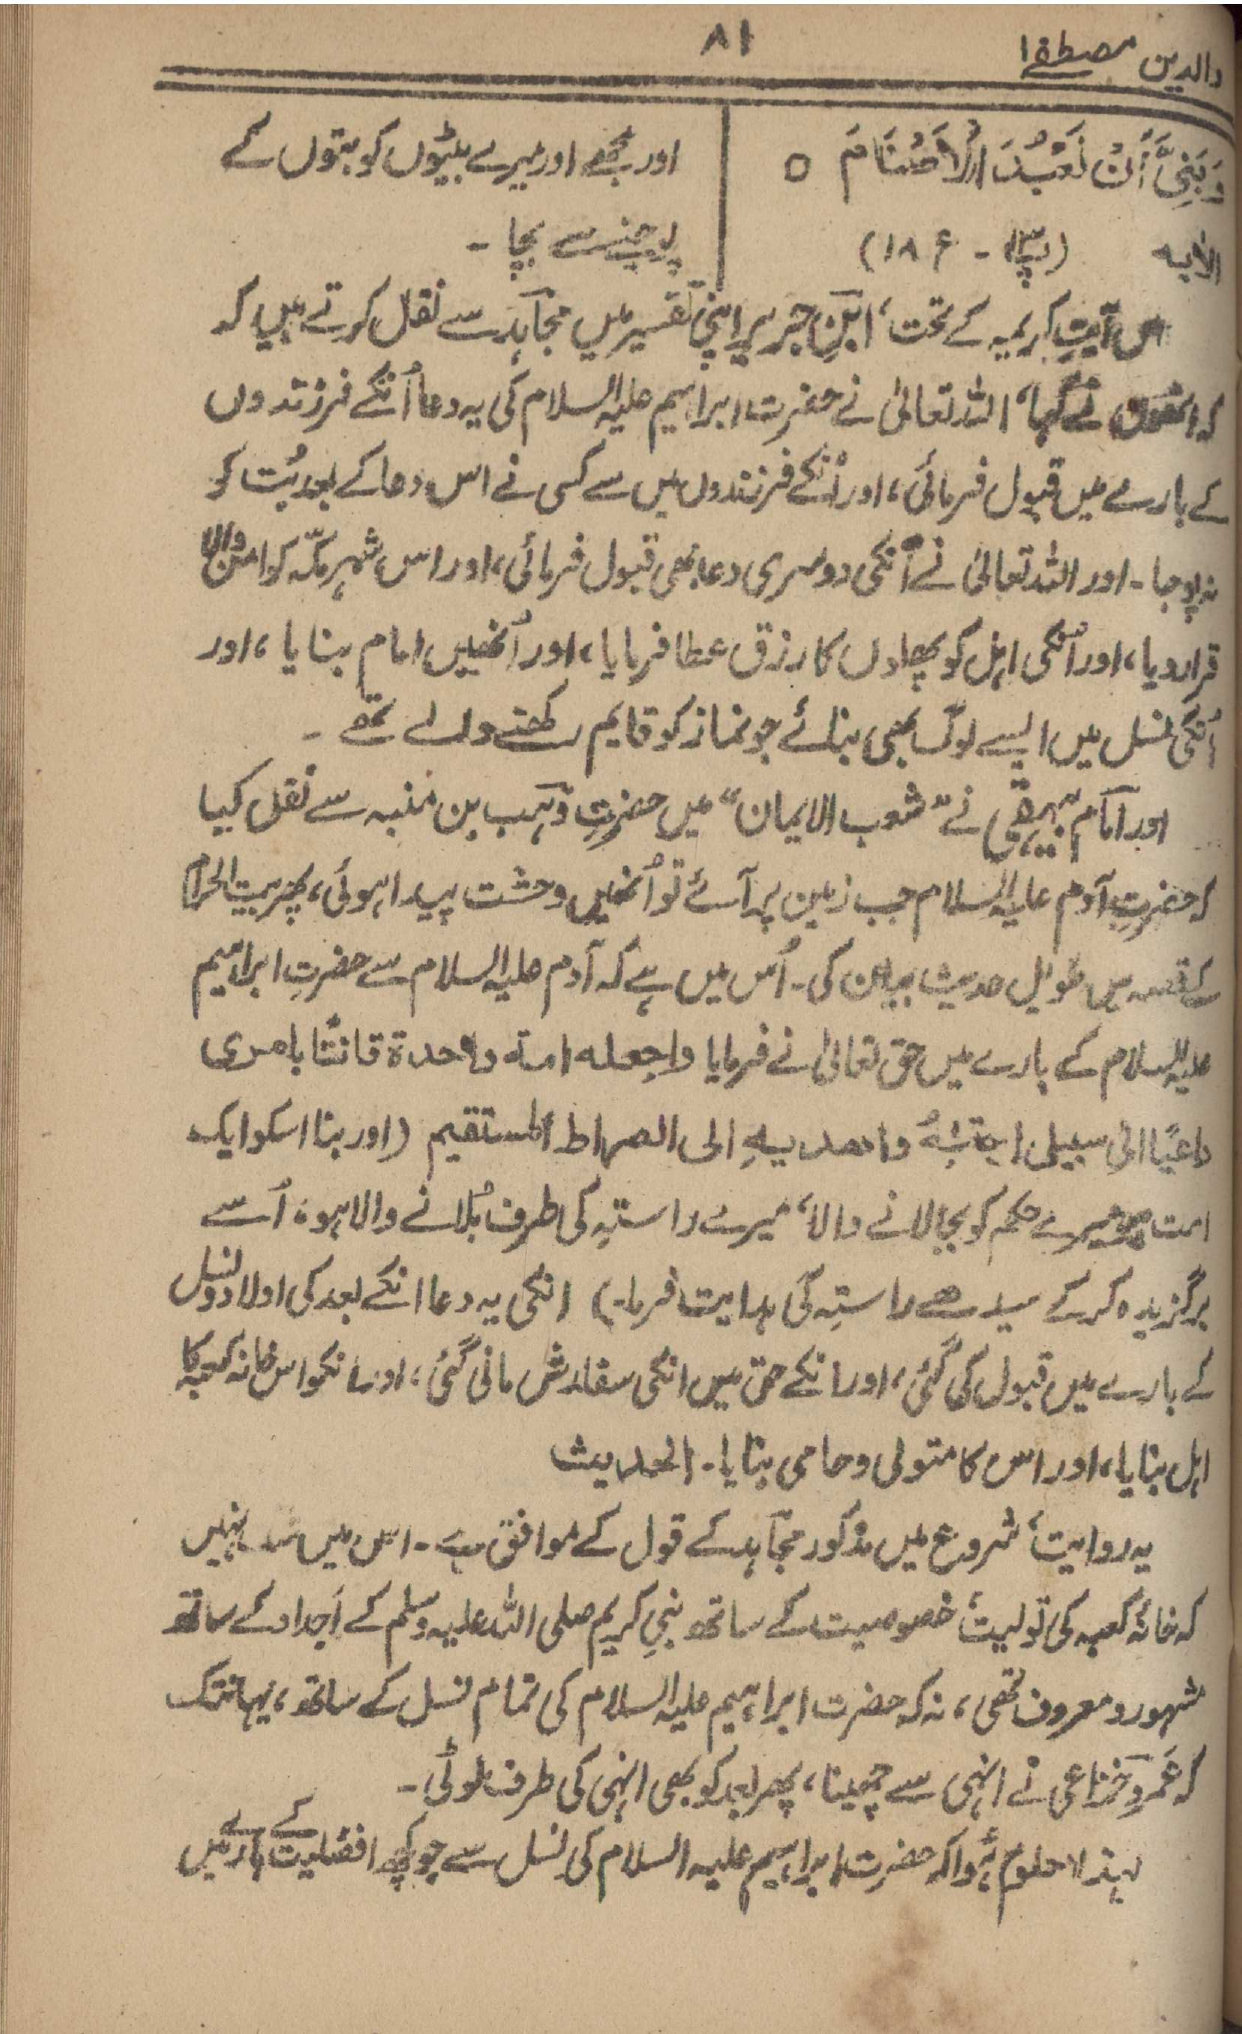 والدین مصطفےٰ
۸۱
وَبَنِیَّ أَنْ نَعْبُدَ الْاَصْنَامَ ○
الآیہ (پ۱۳ - ع ۱۸)
اور مجھے اور میرے بیٹیوں کو بتوں کے
پوجنے سے بچا ۔
اس آیتِ کریمہ کے تحت، ابنِ جریر اپنی تفسیر میں مجاہد سے نقل کرتے ہیں کہ
کہ انھوں نے کہا، اللہ تعالیٰ نے حضرت ابراہیم علیہ السلام کی یہ دعا اُنکے فرزندوں
کے بارے میں قبول فرمائی، اور اُنکے فرزندوں میں سے کسی نے اس دعا کے بعد بُت کو
نہ پوجا۔ اور اللہ تعالیٰ نے اُنکی دوسری دعا بھی قبول فرمائی، اور اس شہر مکّہ کو امن والا
قرار دیا، اور اُنکی اہل کو پھلوں کا رزق عطا فرمایا، اور اُنھیں امام بنایا، اور
اُنکی نسل میں ایسے لوگ بھی بنائے جو نماز کو قایم رکھنے والے تھے ۔
اور امام بیہقی نے "شعب الایمان" میں حضرتِ وہب بن منبہ سے نقل کیا
کہ حضرتِ آدم علیہ السلام جب زمین پر آئے تو اُنھیں وحشت پیدا ہوئی، پھر بیت الحرام
کے قصہ میں طویل حدیث بیان کی۔ اُس میں ہے کہ آدم علیہ السلام سے حضرتِ ابراہیم
علیہ السلام کے بارے میں حق تعالیٰ نے فرمایا واجعلہ امۃ واحدۃ قانتًا بامری
داعیًا الیٰ سبیلی اجتبیْہُ واھدیہِ الی الصراط المستقیم (اور بنا اسکو ایک
امت جو میرے حکم کو بجالانے والا، میرے راستہ کی طرف بُلانے والا ہو، اُسے
برگزیدہ کرکے سیدھے راستہ کی ہدایت فرما۔) انکی یہ دعا انکے بعد کی اولاد و نسل
کے بارے میں قبول کی گئی، اور انکے حق میں انکی سفارش مانی گئی، اور انکو اس خانہ کعبہ کا
اہل بنایا، اور اس کا متولی و حامی بنایا۔ الحدیث
یہ روایت، شروع میں مذکور مجاہد کے قول کے موافق ہے۔ اس میں نہیں
کہ خانۂ کعبہ کی تولیت، خصوصیت کے ساتھ نبیِ کریم صلی اللہ علیہ وسلم کے اَجداد کے ساتھ
مشہور و معروف تھی، نہ کہ حضرت ابراہیم علیہ السلام کی تمام نسل کے ساتھ، یہانتک
کہ عَمرو خزاعی نے انہی سے چھینا، پھر بعد کو بھی انہی کی طرف لوٹی۔
لہٰذا معلوم ہُوا کہ حضرت ابراہیم علیہ السلام کی نسل سے جو کچھ افضلیت کے بارے میں